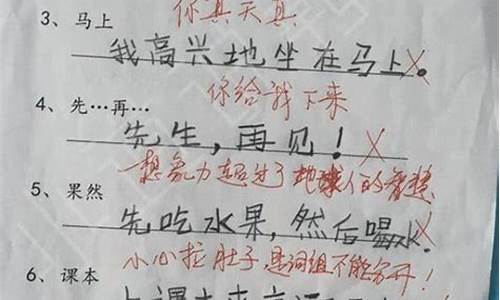 你真天真
3、马上
我高兴地坐在马上。
你给我下来
4、先…再…
先生，再见！
想象力超过了地球人的智慧
5、果然
先吃水果，然后喝水.
小心拉肚子，是词组不能分开！
6、课本
上课本来应